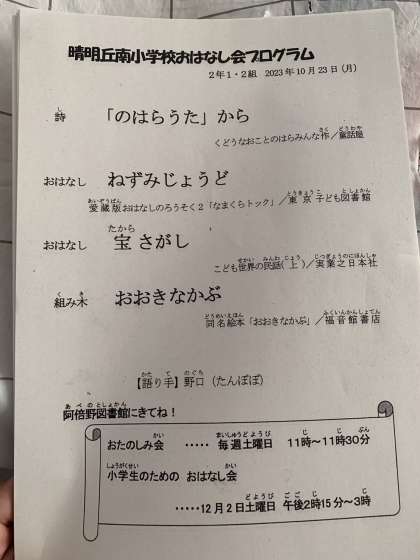 晴明丘南小学校おはなし会プログラム
2年1・2組 2023年10月23日(月)
詩 「のはらうた」から
くどうなおことのはらみんな作／童話屋
おはなし ねずみじょうど
愛蔵版おはなしのろうそく2「なまくらトック」／東京子ども図書館
おはなし 宝さがし
こども世界の民話(上)／実業之日本社
組み木 おおきなかぶ
同名絵本「おおきなかぶ」／福音館書店
【語り手】野口（たんぽぽ）
阿倍野図書館にきてね！
おたのしみ会 ‥‥‥ 毎週土曜日 11時～11時30分
小学生のための おはなし会
‥‥‥12月2日土曜日 午後2時15分～3時